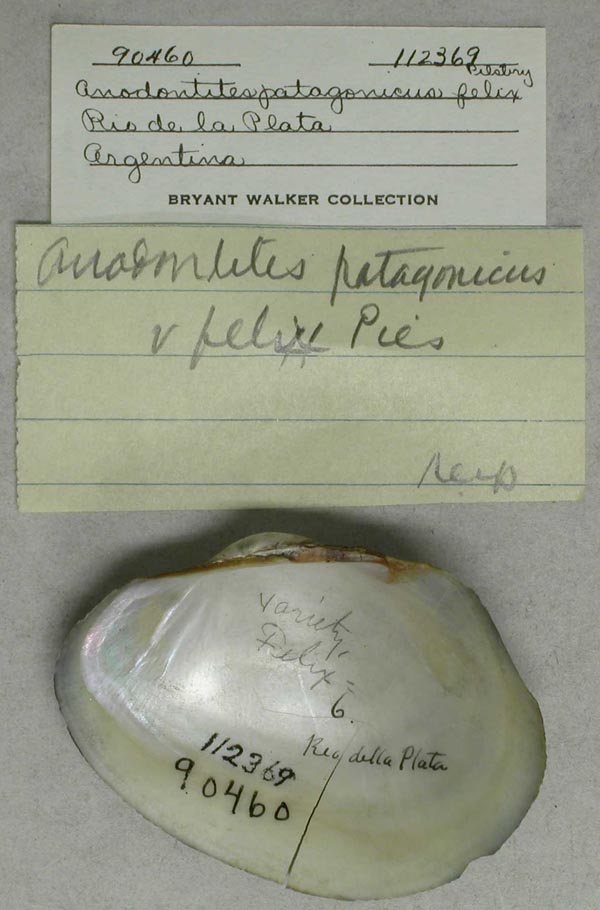 90460 112369
Pilsbry
Anodontites patagonicus felix
Rio de la Plata
Argentina
BRYANT WALKER COLLECTION
Anodontites patagonicus
v felix Pils
Variety,
Felix =
6.
Rio della Plata
112369
90460